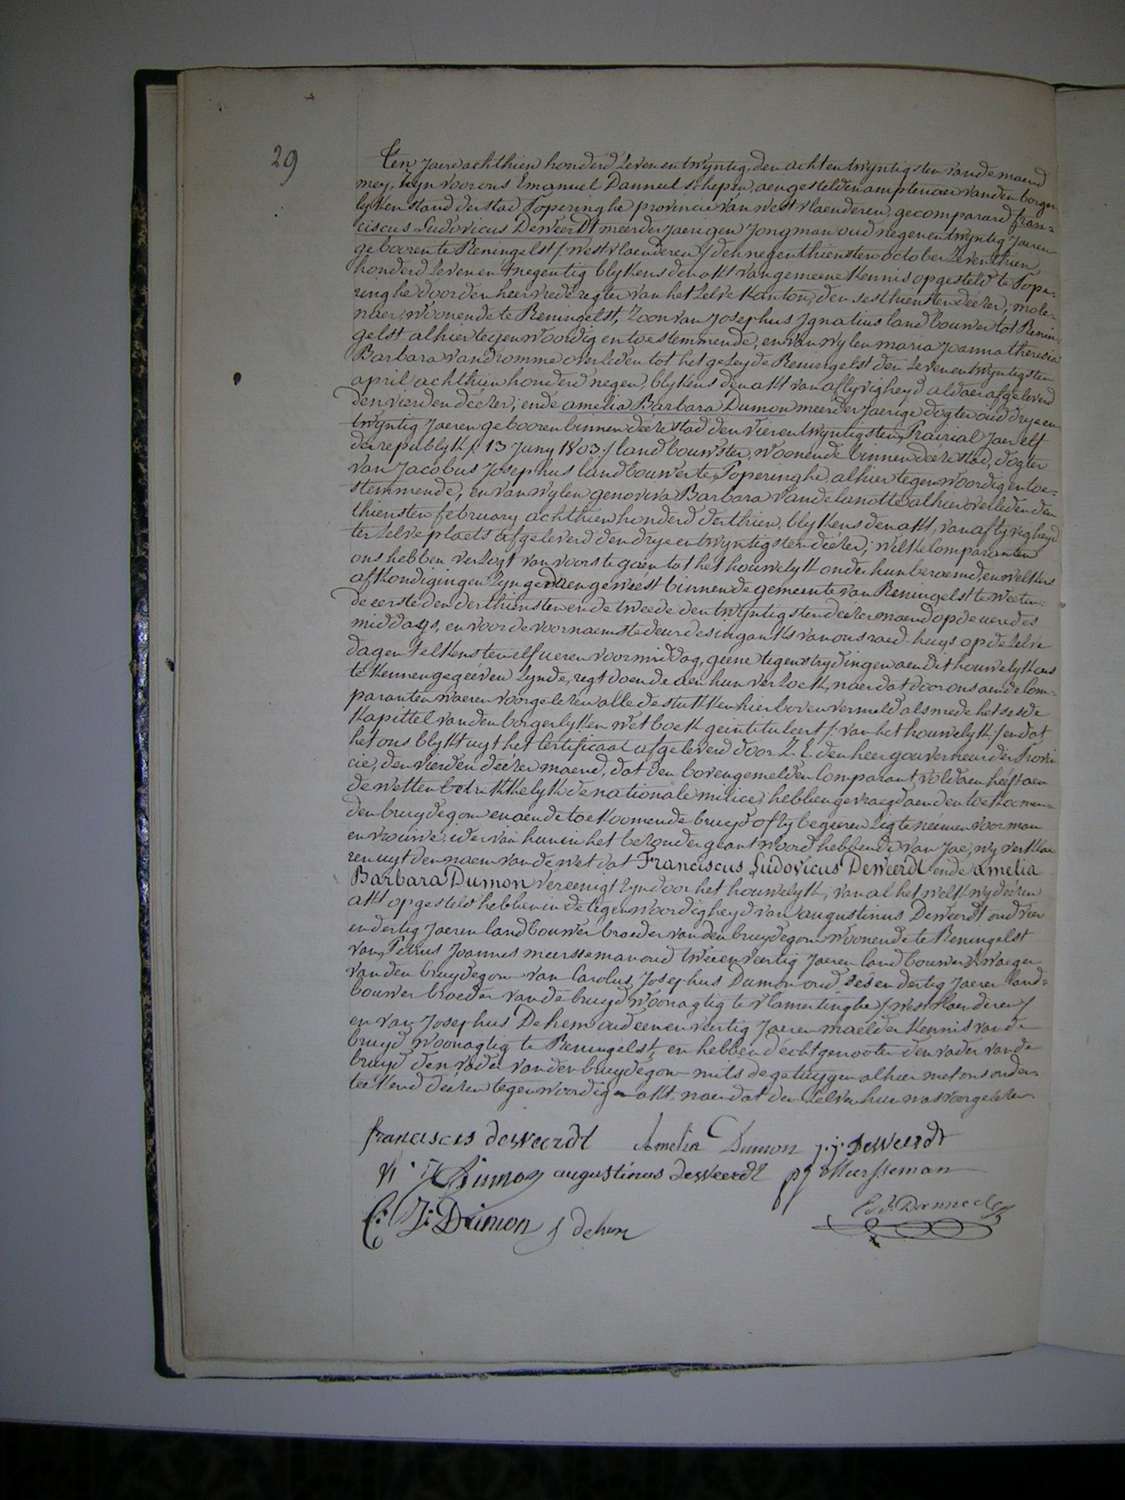 29
Ten jaere achthien honderd zeven en twyntig, den achtentwyntigsten van de maend
mey, zyn voor ons Emanuel Danneel schepen, aengestelden amptenaer van den borger-
lyken stand der stad Poperinghe provincie van westvlaenderen, gecompareerd fran-
ciscus Ludovicus Deweerdt meerderjaerigen jongman oud negenentwyntig jaeren
geboren te Reningelst /westvlaenderen/ den negenthiensten october zeventhien
honderd zeven en tnegentig blykens den akt van gemeene kennis opgesteld te Pope-
ringhe door den heer vrederegter van het zelve kanton, den sesthiensten deezer, mole-
naer, woonende te Reningelst, zoon van Josephus Ignatius landbouwer tot Renin-
gelst alhier tegenwoordig en toestemmende, en van wylen maria Joanna theresia
Barbara Vandromme overleden tot het gezeyde Reningelst den zevenentwyntigsten
april achthien honderd negen, blykens den akt van aflyvigheyd aldaer afgeleverd
den vierden deezer, ende amelia Barbara Dumon meerderjaerige dogter oud dryen-
twyntig jaeren gebooren binnen deeze stad den vierentwyntigsten Prairial jaer elf
der republyk / 13 juny 1803 / landbouwster, woonende binnen deeze stad, dogter
van Jacobus Josephus landbouwer te Poperinghe, alhier tegenwoordig en toe-
stemmende, en van wylen genoviva Barbara Vandelanotte alhier overleden den
thiensten february achthien honderd derthien, blykens den akt van aflyvigheyd
ter zelve plaets afgeleverd den dryentwyntigsten deezer; welke comparanten
ons hebben verzogt van voorts te gaen tot het houwelyk onder hun beraemd, en welkers
afkondigingen zyn gedaen geweest binnen de gemeente van Reningelst te weeten:
de eerste den derthiensten ende tweede den twyntigsten deezer maend op de ueredes
middags, en voor de voornaemste deure des inganks van ons raed-huys op de zelve
dagen telkens ten elf ueren voormiddag, geene tegenstrydingen aen dit houwelyk ons
te kennen gegeéven zynde, regt doende aen hun verzoek, naer dat door ons aen de com-
paranten waeren voorgelezen alle de stukken hier boven vermeld alsmede het sesde
kapittel van den borgerlyken wetboek geintituleert /: van het houwelyk / en dat
het ons blykt uyt het certificaat afgeleverd door Z. E. den heer gouverneur der Provin-
cie, den vierden deezer maend, dat den bovengemelden comparant voldaen heeft aen
de wetten betrekkelyk de nationale militie, hebben gevraegd aen den toekoomen-
den bruydegom en aen de toekoomende bruyd of zy begeeren zig te neémen voor man
en vrouwe, ider van hun in het bezonder geantwoord hebbende van Jae, wy verklae-
ren uyt den naem van de wet dat Franciscus Ludovicus Deweerdt ende amelia
Barbara Dumon vereenigt zyn door het houwelyk, van al het welk wy deézen
akt opgesteld hebben in de tegenwoordigheyd van augustinus Deweerdt oud vier
en dertig jaeren landbouwer broeder van den bruydegom woonende te Reningelst
van Petrus Joannes meersseman oud tweenveertig jaeren landbouwer zwaeger
van den bruydegom van Carolus Josephus Dumon oud sésendertig jaeren land-
bouwer broeder van de bruyd woonagtig te vlamertinghe / westvlaenderen /
en van Josephus Dehem oud eenenveertig jaeren maelder kennis van de
bruyd woonagtig te Reningelst, en hebben d'echtgenooten den vader van de
bruyd den vader van den bruydegom mits de getuygen alhier met ons onder-
teekend deézen tegenwoordig akt, naer dat den zelven hun was voorgelezen
franciscus deweerdt Amelia Dumon j: j: DeWeerdt
Dumon augustinus deweerdt pj Meersseman
C: J: Dumon j dehem Em. Danneel